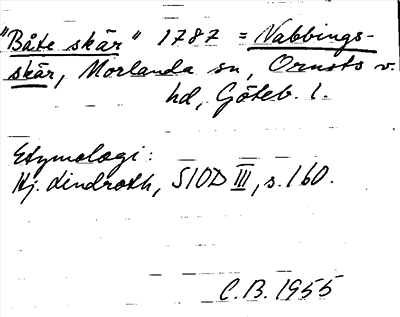 "Båte skär" 1787 = Nabbings-
skär, Morlanda sn, Orusts v.
hd, Göteb. l.
Etymologi:
Hj. Lindroth, SIOD III, s. 160.
C.B. 1955